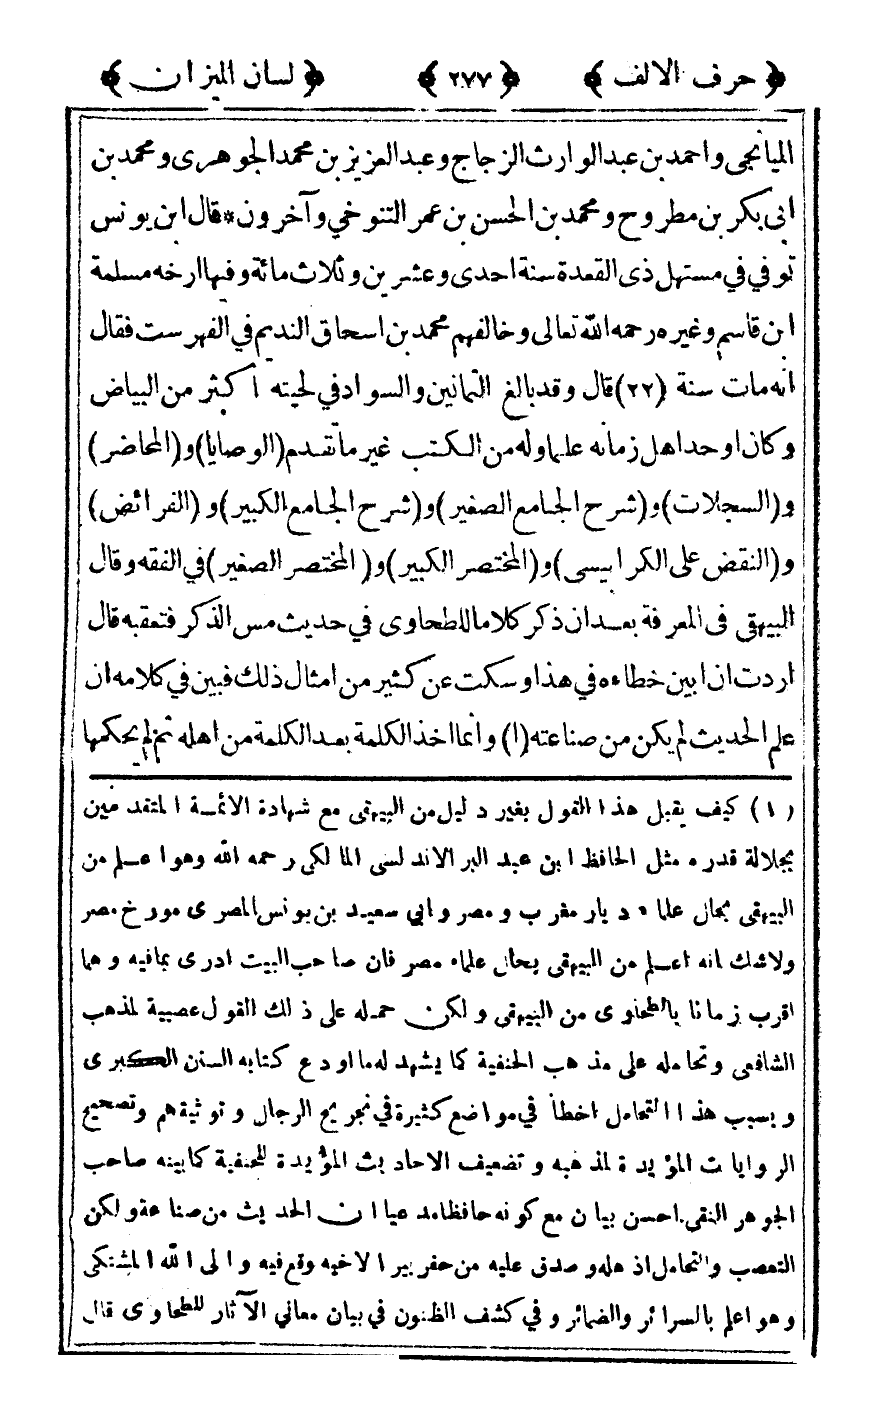 ﴿ حرف الالف ﴾ ﴿ ٢٧٧ ﴾ ﴿ لسان الميزان ﴾
الميانجى واحمد بن عبد الوارث الزجاج وعبد العزيز بن محمد الجوهرى ومحمد بن
ابى بكر بن مطروح ومحمد بن الحسن بن عمر التنوخي وآخرون * قال ابن يونس
توفي في مستهل ذى القعدة سنة احدى وعشرين وثلاث مائة وفيها ارخه مسلمة
ابن قاسم وغيره رحمه الله تعالى وخالفهم محمد بن اسحاق النديم في الفهرست فقال
انه مات سنة (٢٢) قال وقد بالغ الثمانين والسواد في لحيته اكثر من البياض
وكان اوحد اهل زمانه علما وله من الكتب غير ما تقدم (الوصايا) و(المحاضر)
و(السجلات) و(شرح الجامع الصغير) و(شرح الجامع الكبير) و(الفرائض)
و(النقض على الكرابيسى) و(المختصر الكبير) و(المختصر الصغير) في الفقه وقال
البيهقى فى المعرفة بعد ان ذكر كلاما للطحاوى في حديث مس الذكر فتعقبه قال
اردت ان ابين خطاءه في هذا وسكت عن كثير من امثال ذلك فبين في كلامه ان
علم الحديث لم يكن من صناعته (١) وانما اخذ الكلمة بعد الكلمة من اهله ثم لم يحكمها
(١) كيف يقبل هذا القول بغير دليل من البيهقى مع شهادة الائمة المتقدمين
بجلالة قدره مثل الحافظ ابن عبد البر الاندلسى المالكى رحمه الله وهو اعلم من
البيهقى بحال علماء ديار مغرب ومصر وابي سعيد بن يونس المصرى مورخ مصر
ولاشك انه اعلم من البيهقى بحال علماء مصر فان صاحب البيت ادرى بما فيه وهما
اقرب زمانا بالطحاوى من البيهقى ولكن حمله على ذلك القول عصبية لمذهب
الشافعى وتحامله على مذهب الحنفية كما يشهد له ما اودع كتابه السنن الكبرى
وبسبب هذا التحامل اخطأ في مواضع كثيرة في تجريح الرجال وتوثيقهم وتصحيح
الروايات المؤيدة لمذهبه وتضعيف الاحاديث المؤيدة للحنفية كما بينه صاحب
الجوهر النقى احسن بيان مع كونه حافظا مدعيا ان الحديث من صناعته ولكن
التعصب والتحامل اذهله وصدق عليه من حفر بيرا لاخيه وقع فيه والى الله المشتكى
وهو اعلم بالسرائر والضمائر وفي كشف الظنون في بيان معاني الآثار للطحاوى قال